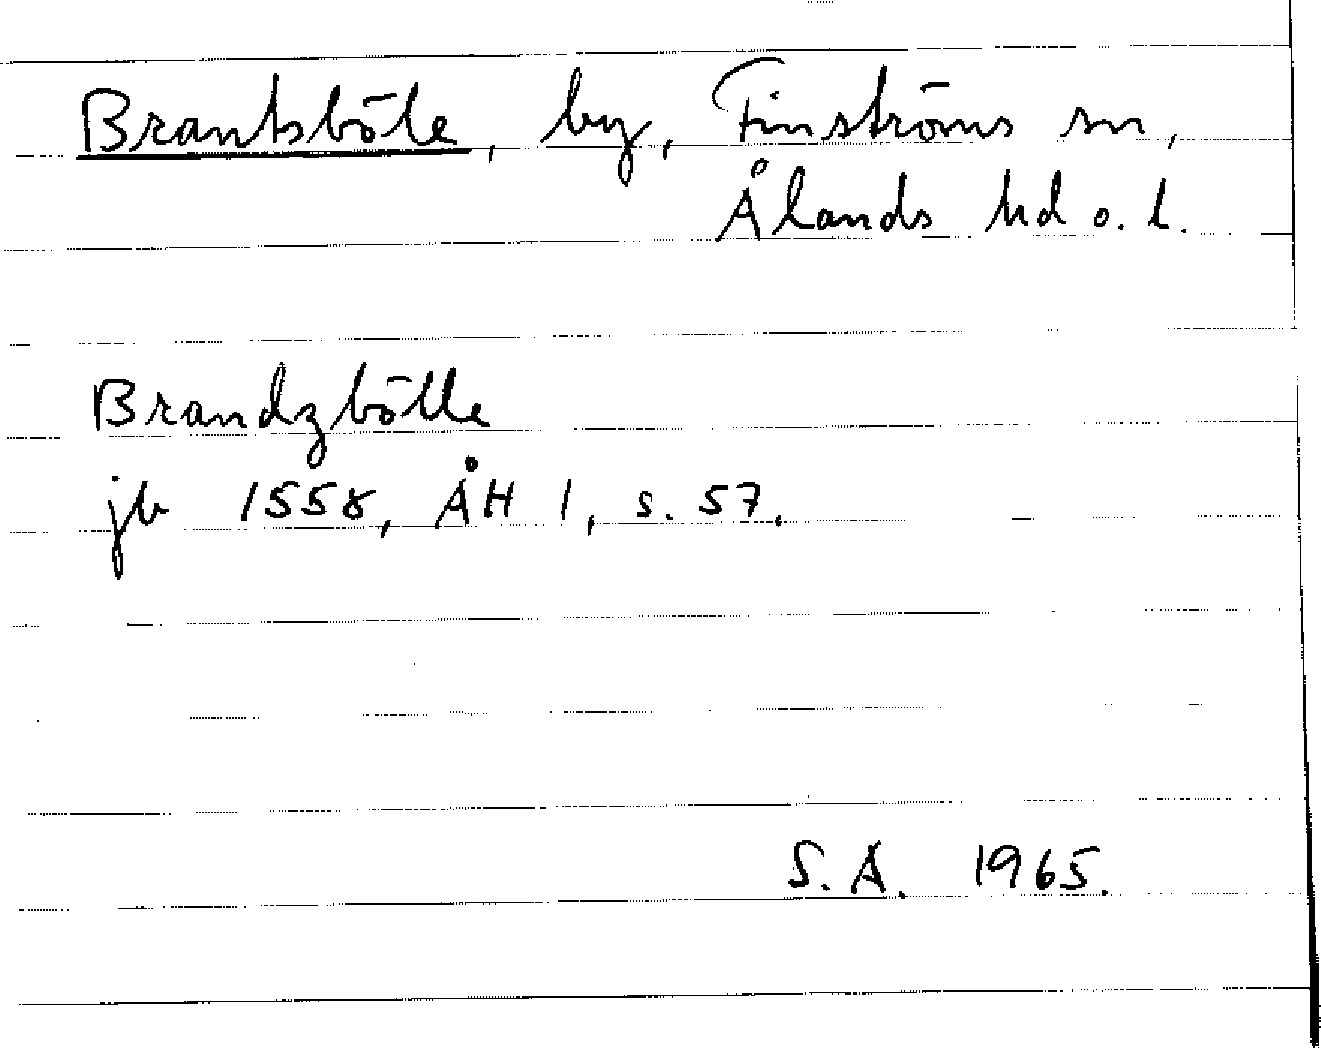 Brantsböle, by, Finströms sn,
Ålands hd o. l.
Brandzbölle
jb 1558, ÅH 1, s. 57.
S.A. 1965.